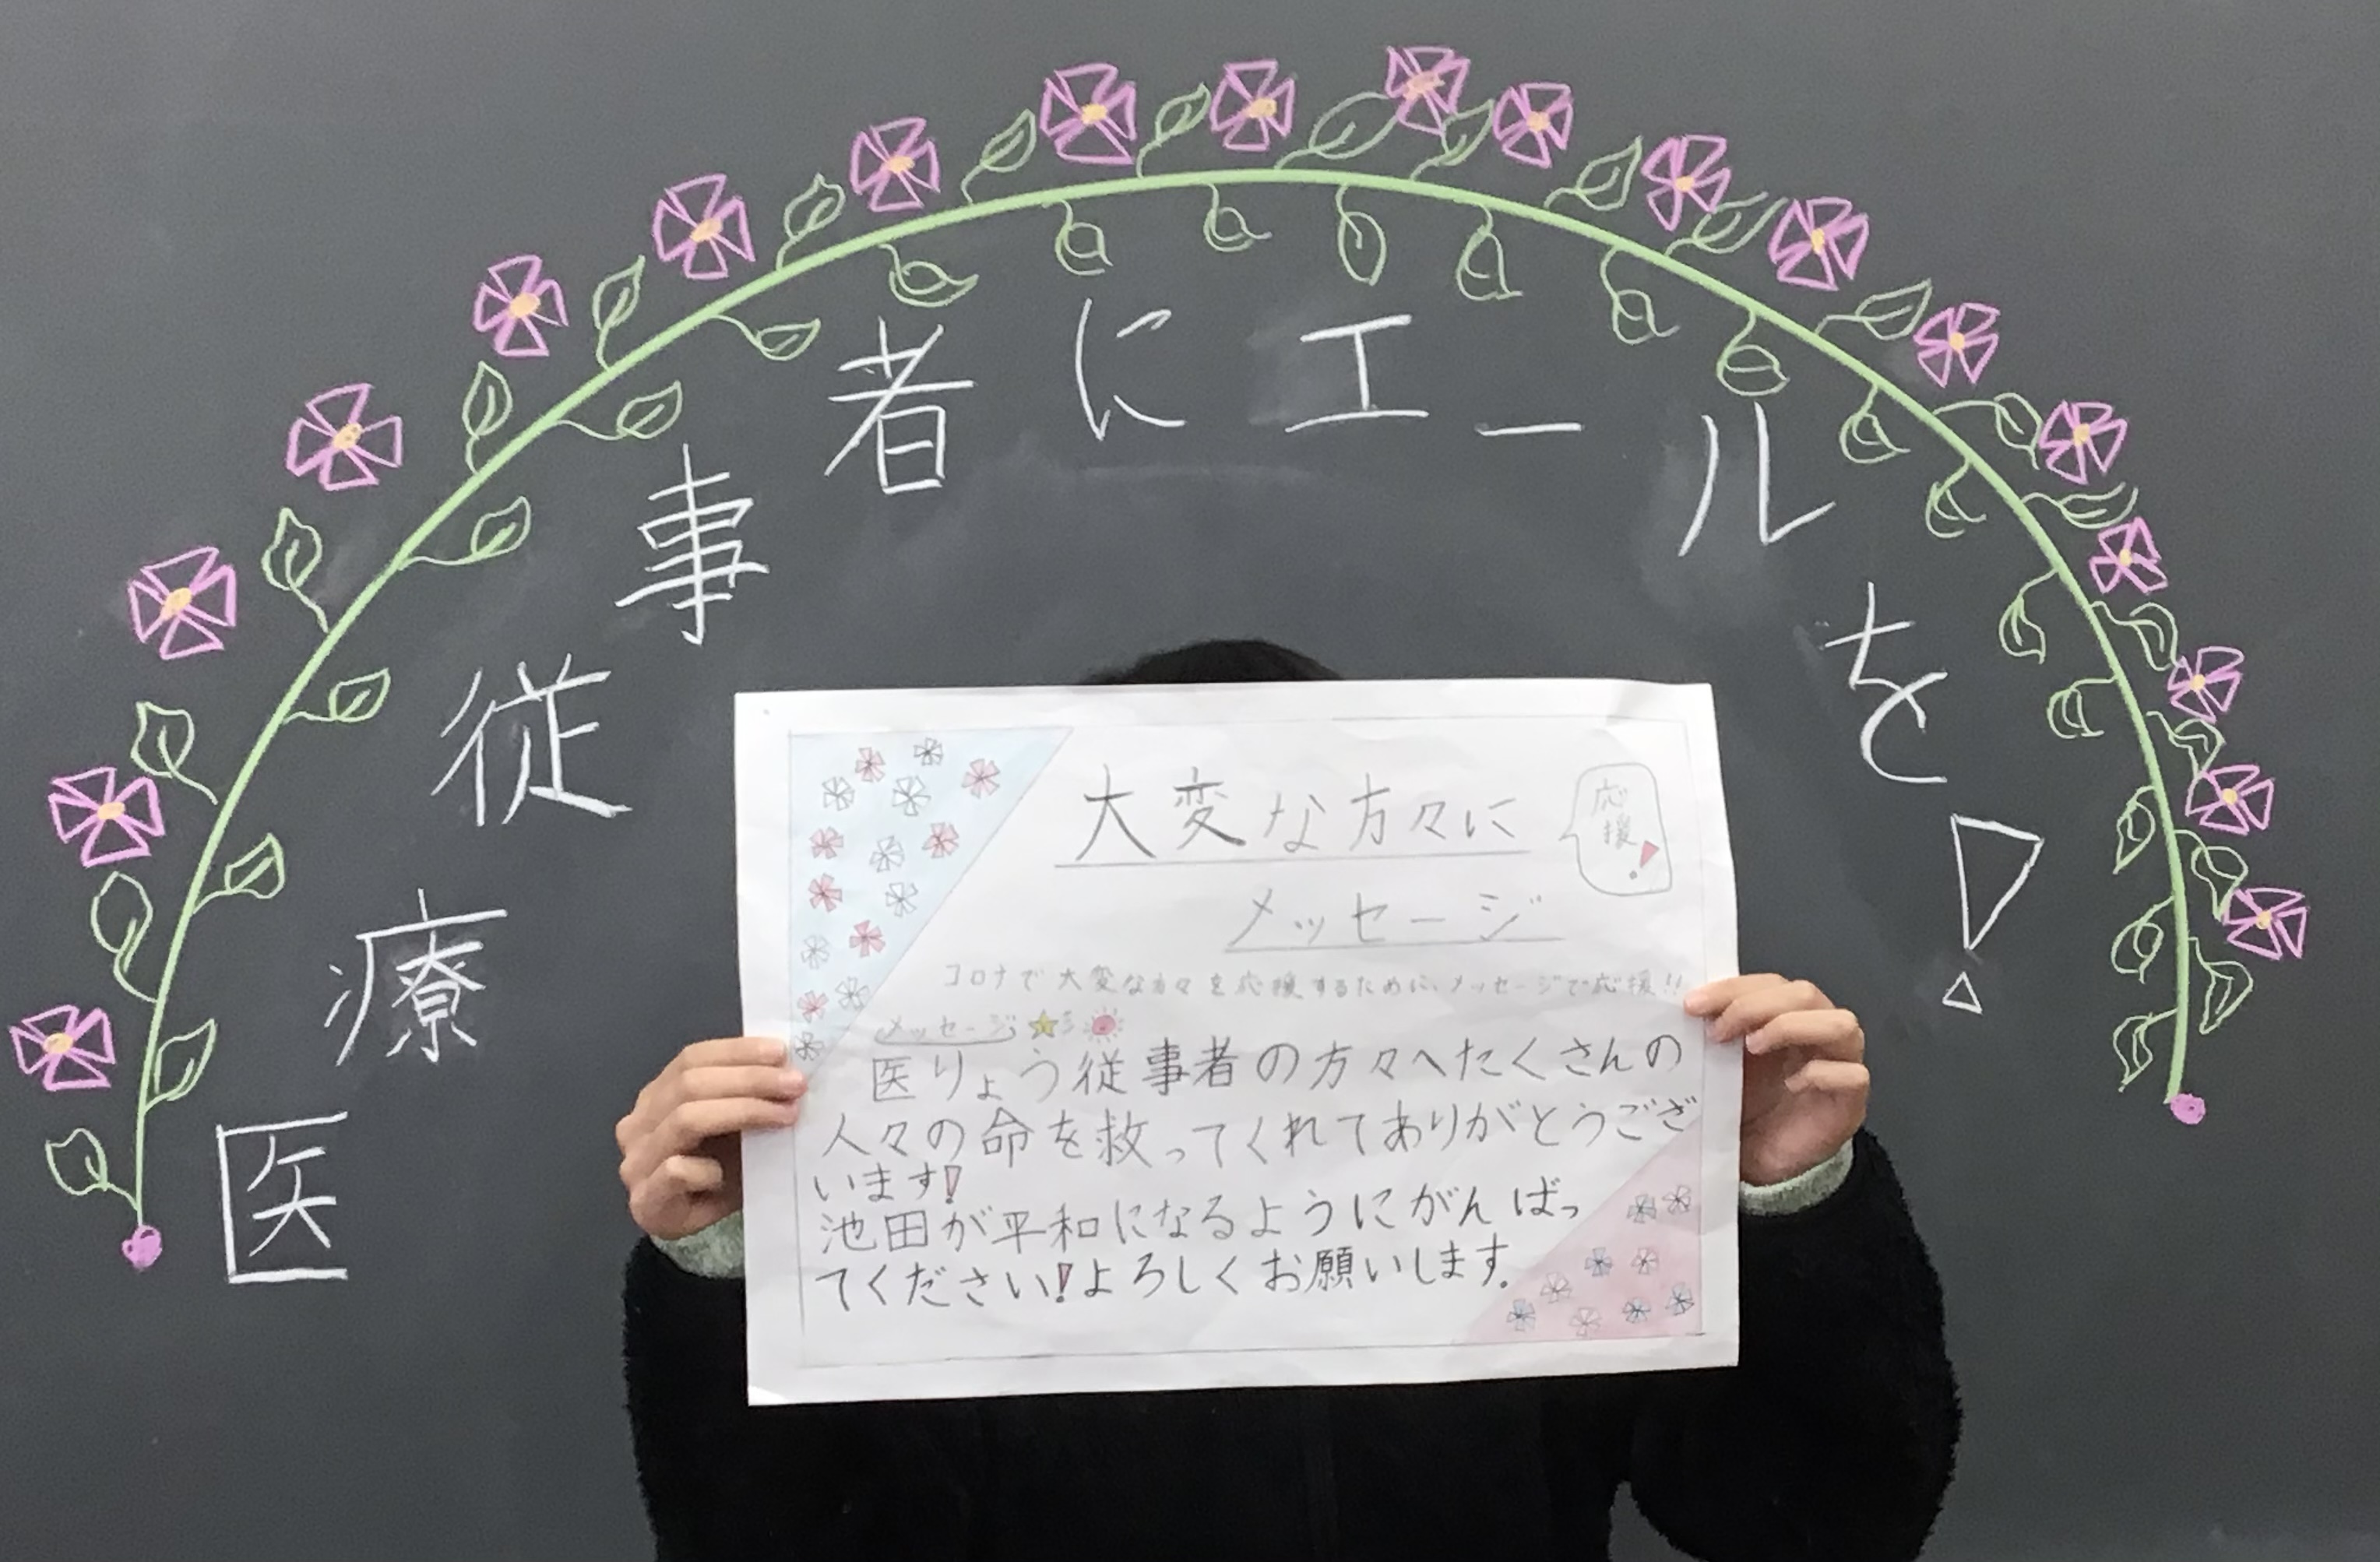 医療従事者にエールを!
大変な方々に
応援!
メッセージ
コロナで大変な方々を応援するために、メッセージで応援!!
メッセージ
医りょう従事者の方々へたくさんの
人々の命を救ってくれてありがとうござ
います!
池田が平和になるようにがんばっ
てください!よろしくお願いします。